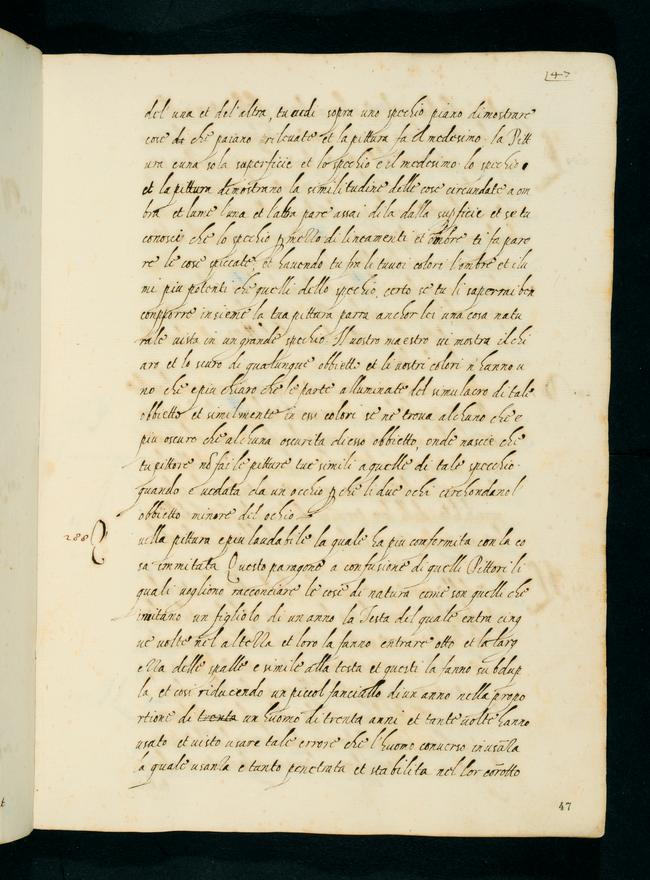 47
del una et del'altra, tu vedi sopra uno spechio piano dimostrare
cose che paiano rilevate et la pittura fa el medesimo. la Pitt
ura e una sola superficie et lo spechio e il medesimo. lo spechio
et la pittura dimostrano la similitudine delle cose circundate a om
bra et lume l'una et l'altra pare assai di la dalla supficie et se tu
conosci che lo spechio p mezzo di lineamenti et ombre ti fa pare
re le cose spiccate, et havendo tu fra li tuoi colori l'ombre et i lu
mi piu potenti che quelli dello spechio, certo se tu li saperrai ben
comporre insieme la tua pittura parra anchor lei una cosa natu
rale vista in un grande spechio. Il vostro maestro vi mostra il chi
aro et lo scuro di qualunque obbietto et li vostri colori n hanno u
no che e piu chiaro che le parte alluminate del simulacro di tale
obbietto et similmente in essi colori se ne trova alchuno che e
piu oscuro che alchuna oscurita di esso obbietto, onde nascie che
tu pittore fai le pitture tue simili a quelle di tale spechio
quando e veduta da un occhio p che li due ochi circhondano l
obbietto minore del ochio
288 Quella pittura e piu laudabile la quale ha piu conformita con la co
sa immitata Questo paragone a confusione di quelli Pittori li
quali vogliono racconciare le cose di natura come son quelli che
imitano un figliolo di un anno la Testa del quale entra cinq
ue volte nel altezza et loro la fanno entrare otto et la larg
ezza delle spalle e simile alla testa et questi la fanno subdup
la, et cosi riducendo un piccol fanciullo di un anno nella propo
rtione di trenta un huomo di trenta anni et tante volte hanno
usato et visto usare tale errore che l'huomo converso in usāza
la quale usanza e tanto penetrata et stabilita nel lor corotto
47